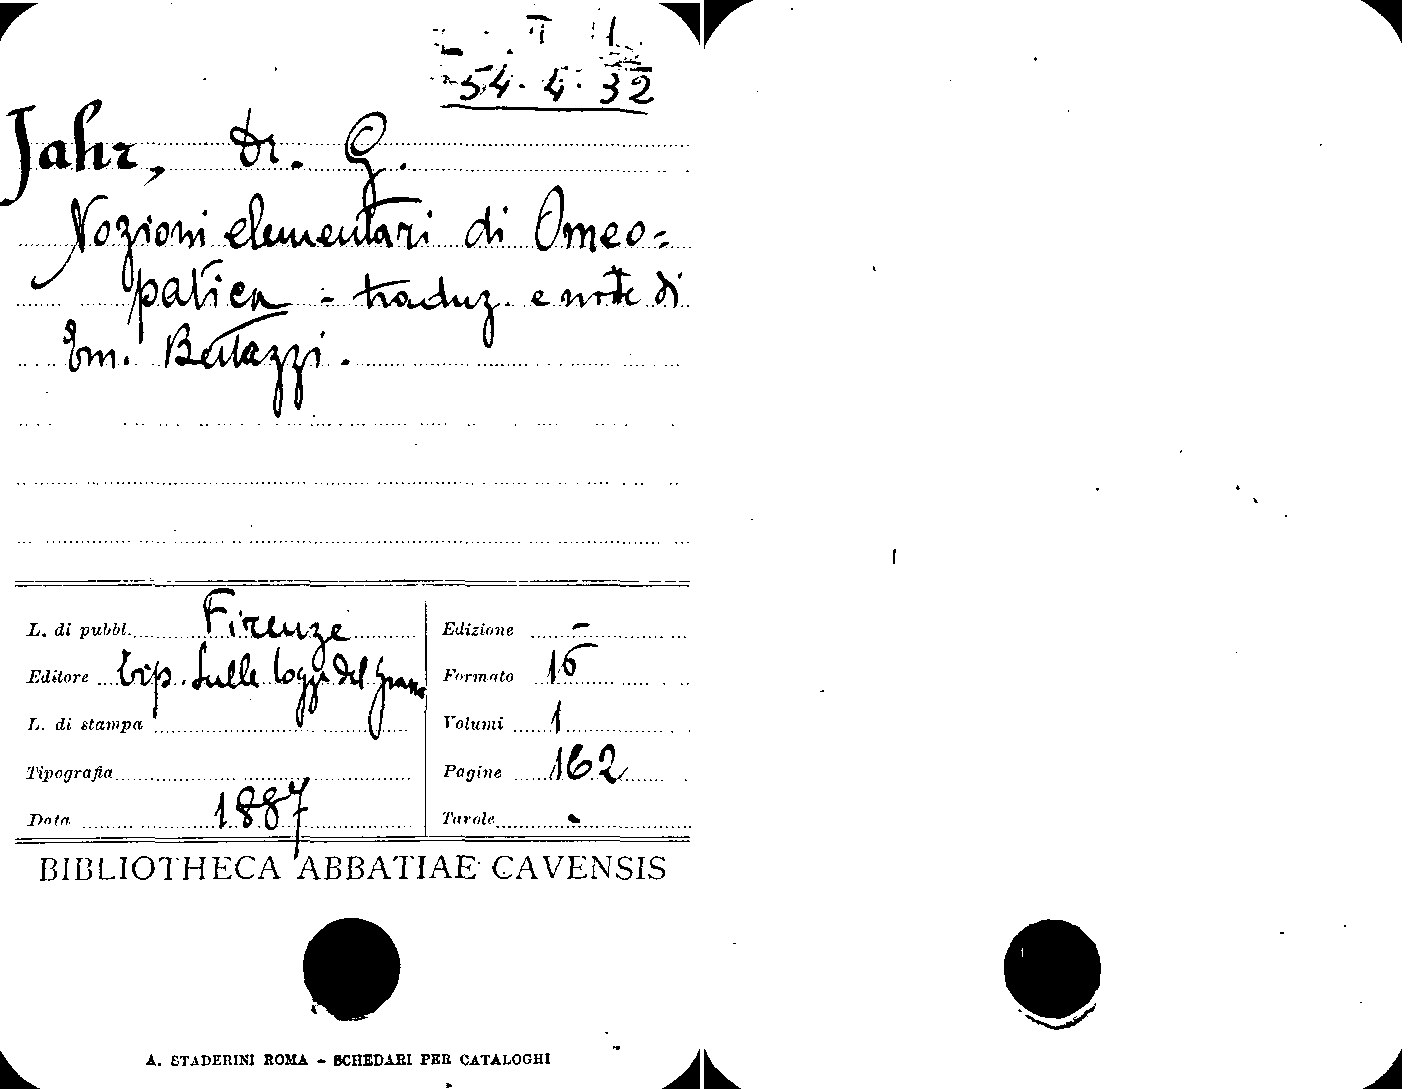 54. 4. 32
Jahr, Dr. G.
Nozioni elementari di Omeo=
patica - traduz. e note di
Em. Bertazzi.
L. di pubbl. Firenze
Edizione -
Editore tip. Sulle logge del grano
Formato 16
L. di stampa
Volumi 1
Tipografia
Pagine 162
Data 1887
Tavole -
BIBLIOTHECA ABBATIAE CAVENSIS
A. STADERINI ROMA - SCHEDARI PER CATALOGHI